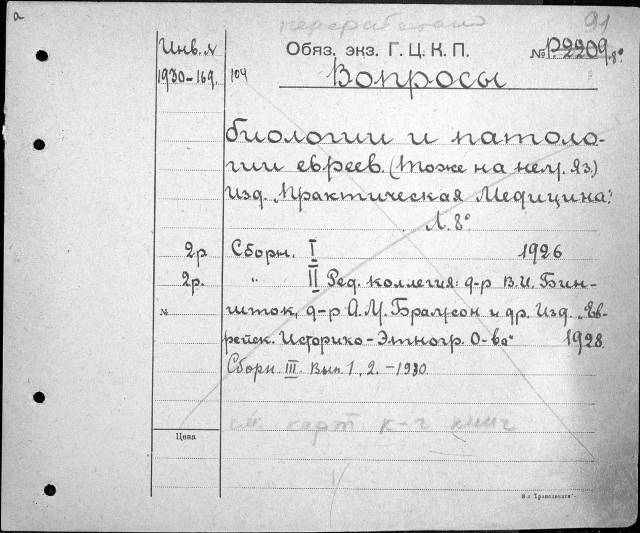 а
переработано
91
Инв. №
Обяз. экз. Г. Ц. К. П.
№ Р.2209.8°
1930-169.
104
Вопросы
биологии и патоло-
гии евреев. (Тоже на нем. яз.)
Изд. "Практическая Медицина".
Л. 8°
2р Сборн. I 1926
2р. " II Ред. коллегия: д-р В.И. Бин-
№
шток, д-р А.М. Брамсон и др. Изд. "Ев-
рейск. Историко-Этногр. О-ва" 1928.
Сборн. III. Вып. 1, 2. - 1930.
см. карт к-г книг
Цена